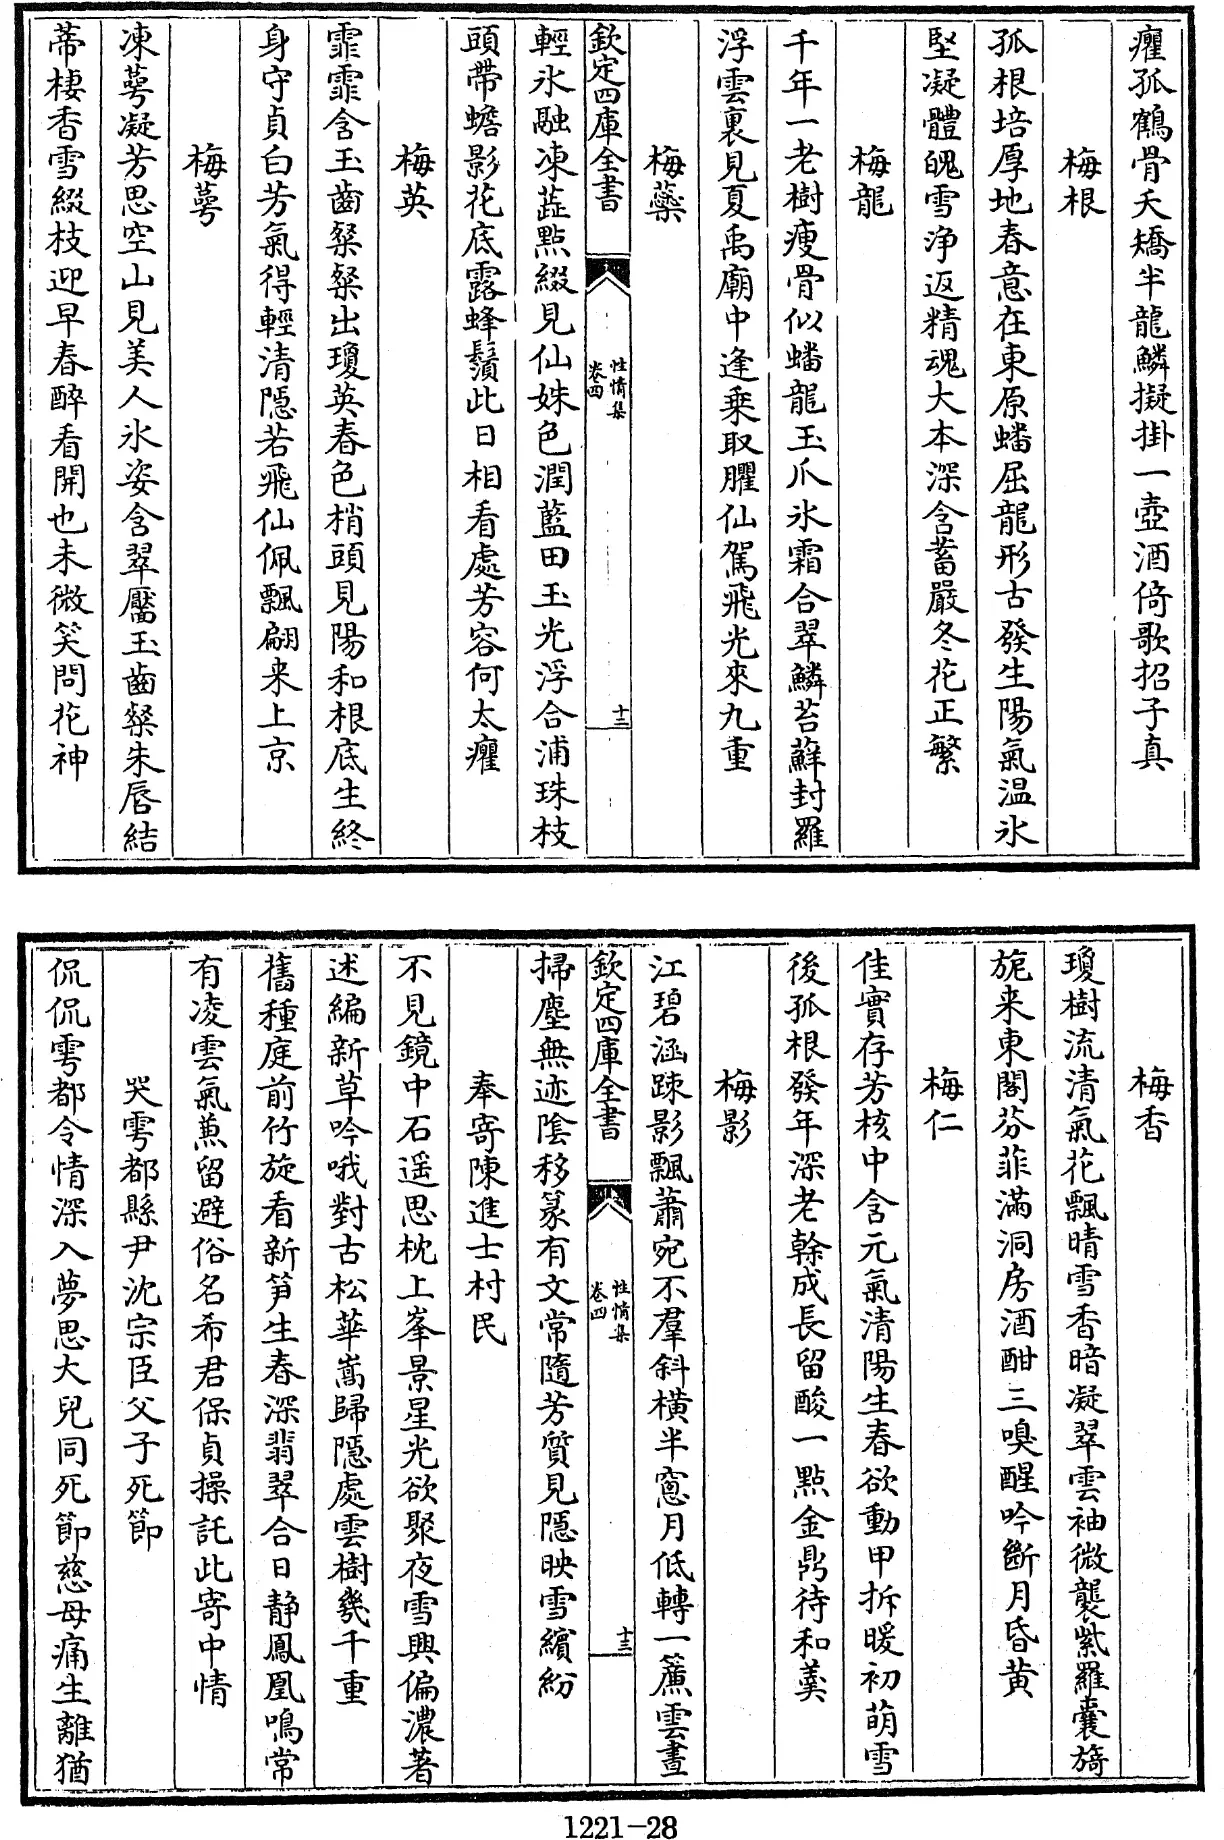 癯孤鶴骨夭矯半龍鱗擬掛一壺酒倚歌招子真
梅根
孤根培厚地春意在東原蟠屈龍形古發生陽氣温氷
堅凝體魄雪浄返精魂大本深含蓄嚴冬花正繁
梅龍
千年一老樹瘦骨似蟠龍玉爪氷霜合翠鱗苔蘚封羅
浮雲裏見夏禹廟中逢乗取臞仙駕飛光來九重
梅蘂
欽定四庫全書
性情集
卷四
十二
輕氷融凍蕋點綴見仙姝色潤藍田玉光浮合浦珠枝
頭帶蟾影花底露蜂鬚此日相看處芳容何太癯
梅英
霏霏含玉齒粲粲出瓊英春色梢頭見陽和根底生終
身守貞白芳氣得輕清隠若飛仙佩飄翩来上京
梅萼
凍萼凝芳思空山見美人氷姿含翠靨玉齒粲朱唇結
蒂棲香雪綴枝迎早春醉看開也未微笑問花神
梅香
瓊樹流清氣花飄晴雪香暗凝翠雲袖微襲紫羅囊旖
旎来東閣芬菲滿洞房酒酣三嗅醒吟斷月昏黄
梅仁
佳實存芳核中含元氣清陽生春欲動甲拆暖初萌雪
後孤根發年深老榦成長留酸一點金鼎待和羮
梅影
江碧涵踈影飄蕭宛不羣斜横半窓月低轉一簾雲畫
欽定四庫全書
性情集
卷四
十三
掃塵無迹隂移篆有文常隨芳質見隠映雪繽紛
奉寄陳進士村民
不見鏡中石遥思枕上峯景星光欲聚夜雪興偏濃著
述編新草吟哦對古松華嵩歸隠處雲樹幾千重
舊種庭前竹旋看新笋生春深翡翠合日静鳳凰鳴常
有凌雲氣兼留避俗名希君保貞操託此寄中情
哭雩都縣尹沈宗臣父子死節
侃侃雩都令情深入夢思大兒同死節慈母痛生離猶
1221-28